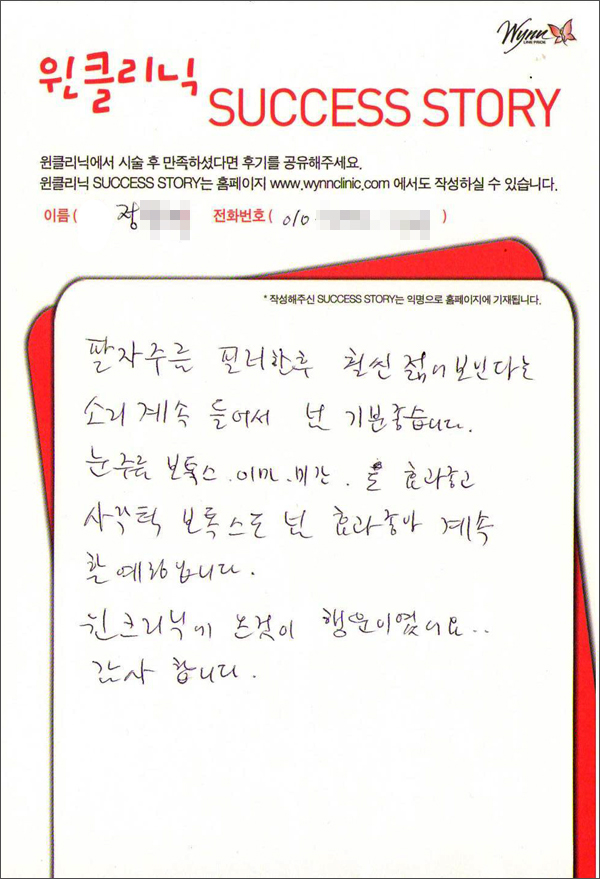 Wynn
LINE PRIDE
윈클리닉
SUCCESS STORY
윈클리닉에서 시술 후 만족하셨다면 후기를 공유해주세요.
윈클리닉 SUCCESS STORY는 홈페이지 www.wynnclinic.com 에서도 작성하실 수 있습니다.
이름 ( 정 전화번호 ( 010 )
* 작성해주신 SUCCESS STORY는 익명으로 홈페이지에 기재됩니다.
팔자주름 필러한후 훨씬 젊어보인다는
소리 계속 들어서 넘 기분좋습니다.
눈주름 보톡스 . 이마 . 미간 . 도 효과좋고
사각턱 보톡스도 넘 효과좋아 계속
할 예정입니다.
윈크리닉에 온것이 행운이였어요..
감사 합니다.